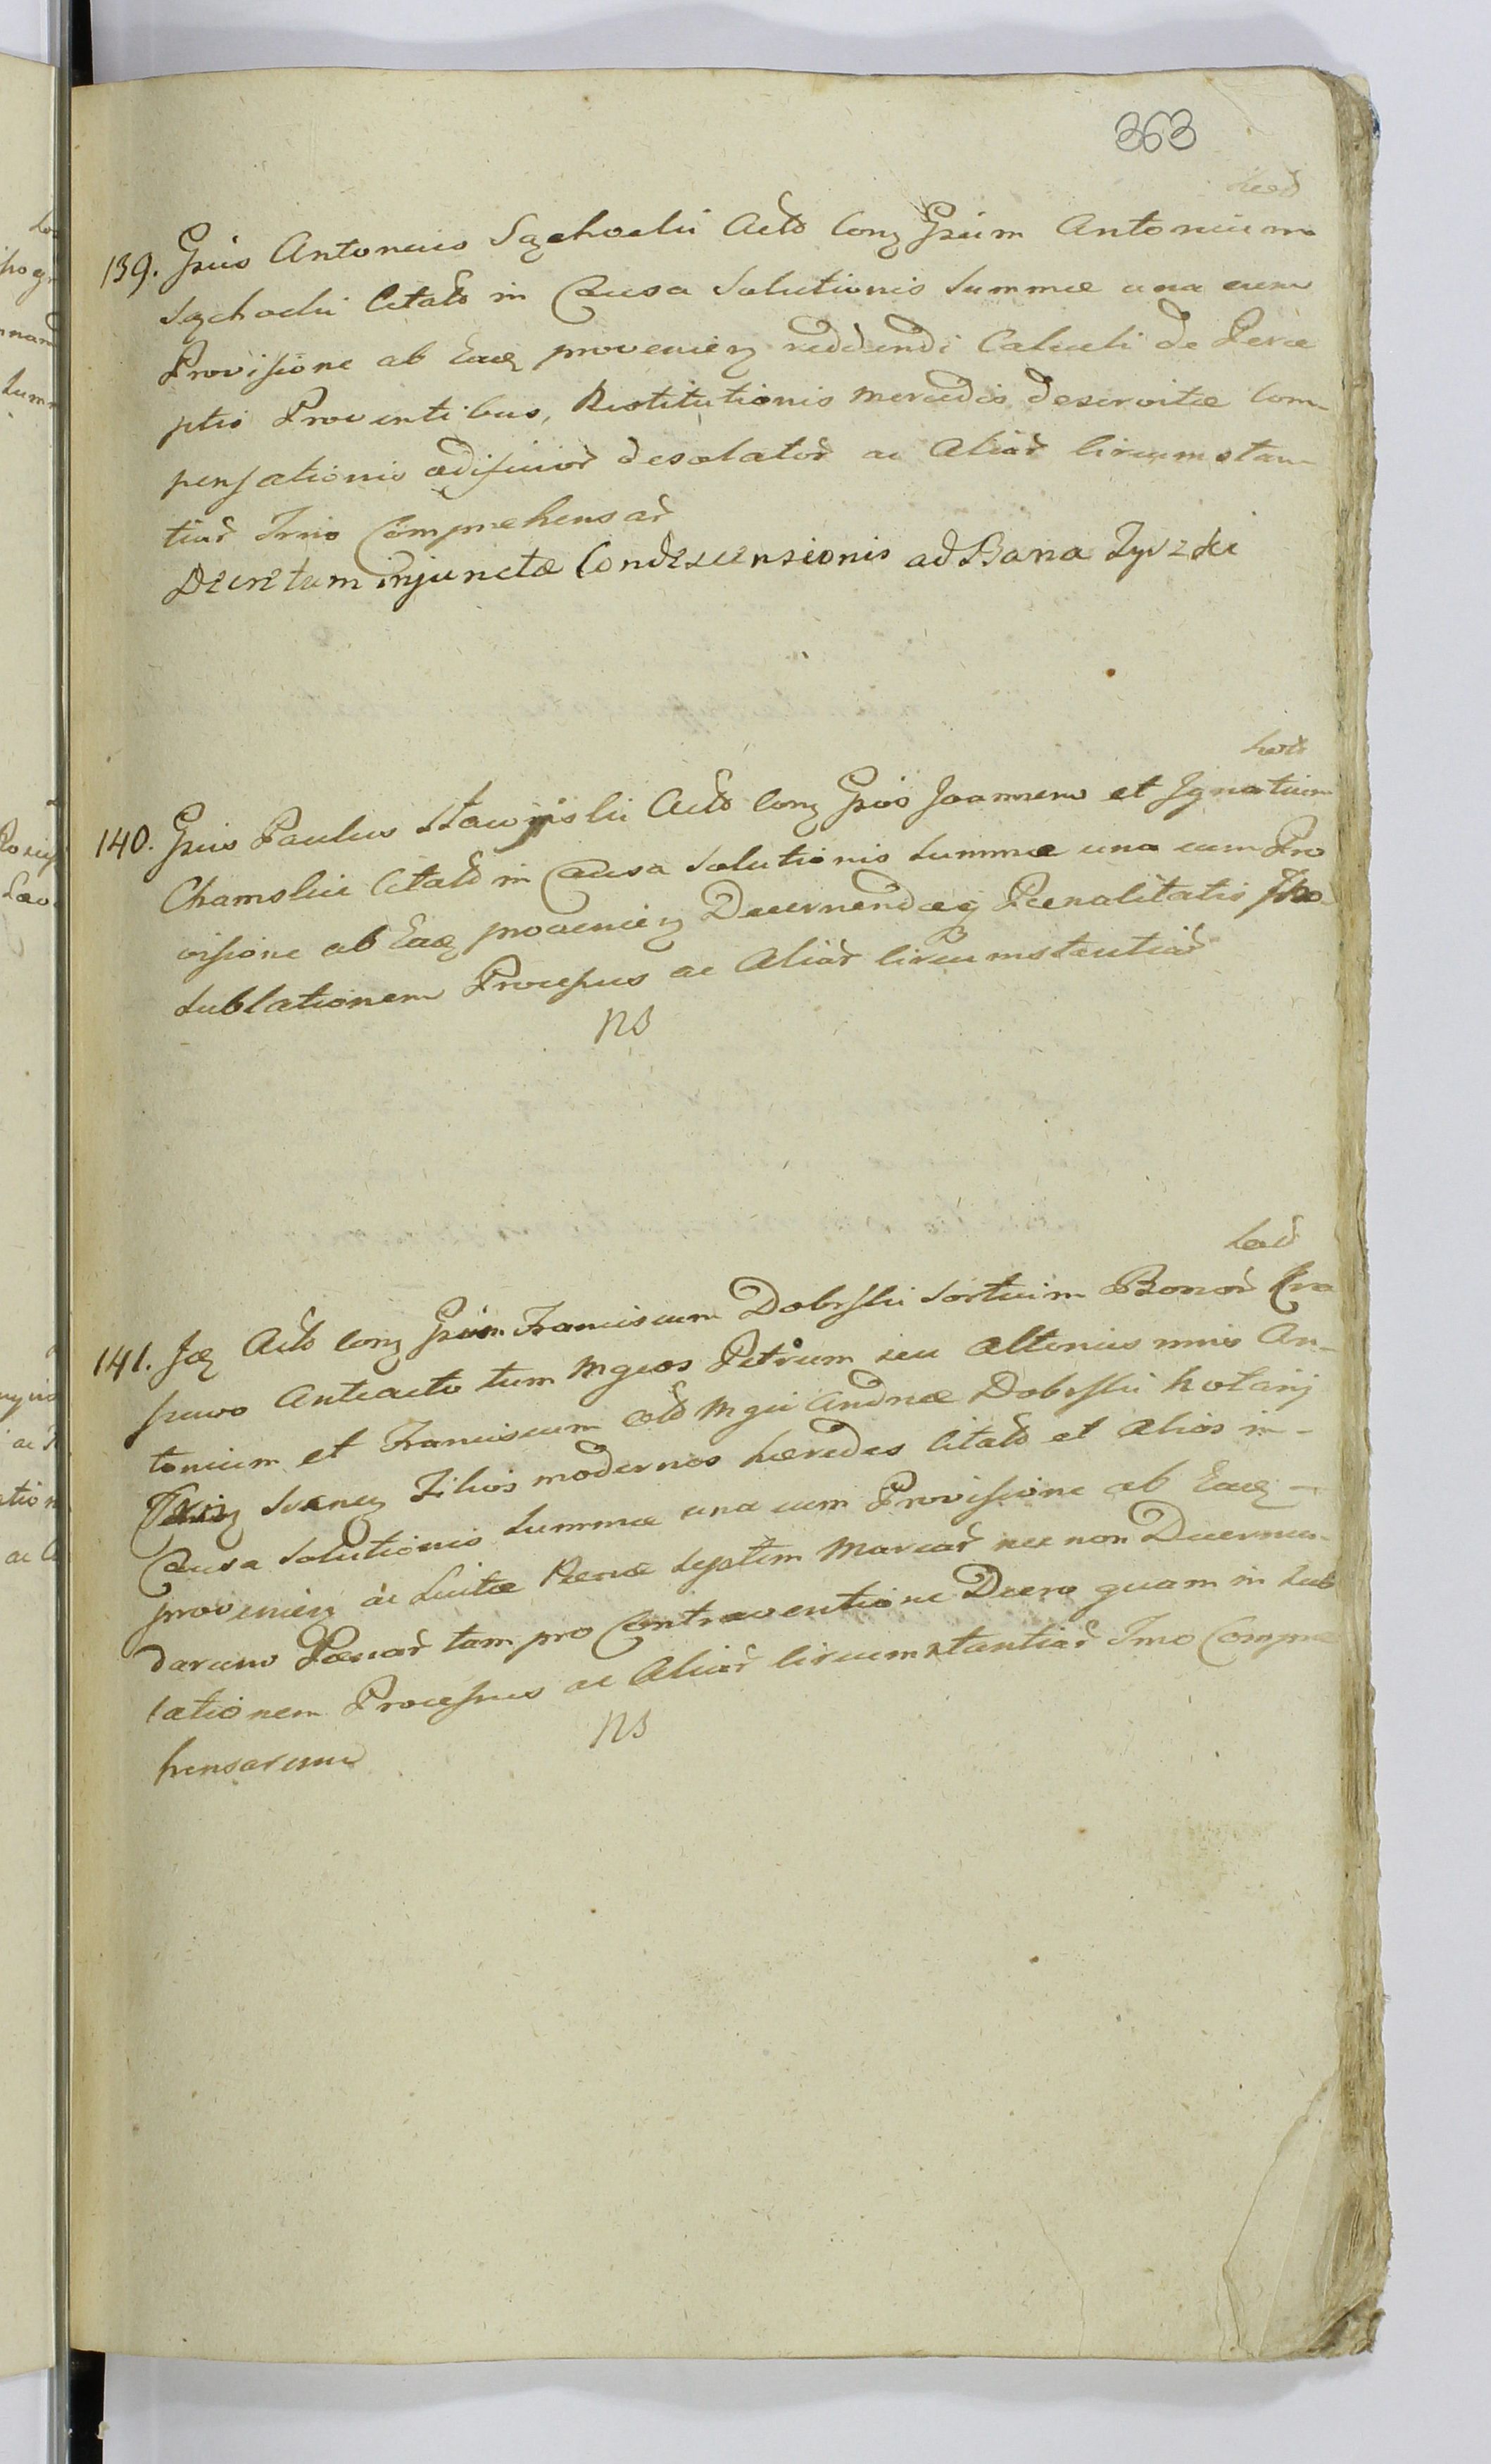 363
139. Gsus Antonius Szchocki Actb Conz Gsum Antonium
Szchocki Citatb in Causa Solutionis Summæ una cum
Provisione ab Eaq provenien reddendi Calculi de Perce
ptis Proventibus, Restitutionis Mercedis deservitæ Com-
pensationis ædificior desolator ac Aliar Circumstan-
tiar Trmo Comprehensar
Decretum injunctæ Condescensionis ad Bona
140. Gsus Paulus Conz Gsos Joannem et Ignatium
Chamskie Citatb in Causa Solutionis Summæ una cum Pro
visione ab Eaq provenien Decernendæq Pœnalitatis
Sublationem Processus ac Aliar Circumstantiar
NS
141. Actb Conz Gsum Franciscum Dobrski Sortium Bonor
Anteacto tum Mgcos Petrum seu alterius nnis An-
tonium et Franciscum olb Mgci Andreæ Dobrski Notarij
Filios modernos hæredes Citatb et Alios in-
Causa Solutionis Summæ una cum Provisione ab Eaq
provenien ac Luitæ Pœnæ Septem Marcar nec non Decernen-
darum Pœnar tam pro Contraventione Decro quam in Sub
lationem Processus ac Aliar Circumstantiar Trmo Compræ
hensarum
NS